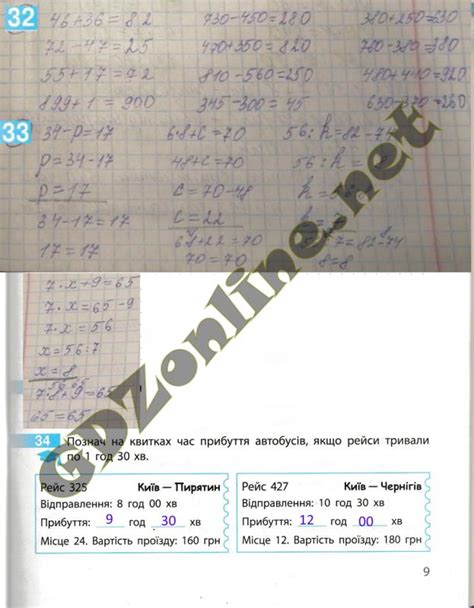 32
46+36=82 730-450=280 380+250=630
72-47=25 470+350=820 760-380=380
55+17=72 810-560=250 480+440=920
899+1=900 345-300=45 630-370=260
33
34-p=17 6·8+c=70 56:k=82-74
p=34-17 48+c=70 56:k=8
p=17 c=70-48
34-17=17 c=22 k=7
17=17 6·8+22=70 56:7=82-74
70=70 8=8
7·x+9=65
7·x=65-9
7·x=56
x=56:7
x=8
7·8+9=65
65=65
34 Познач на квитках час прибуття автобусів, якщо рейси тривали
по 1 год 30 хв.
Рейс 325 Київ — Пирятин
Відправлення: 8 год 00 хв
Прибуття: 9 год 30 хв
Місце 24. Вартість проїзду: 160 грн
Рейс 427 Київ — Чернігів
Відправлення: 10 год 30 хв
Прибуття: 12 год 00 хв
Місце 12. Вартість проїзду: 180 грн
9
GDZonline.net